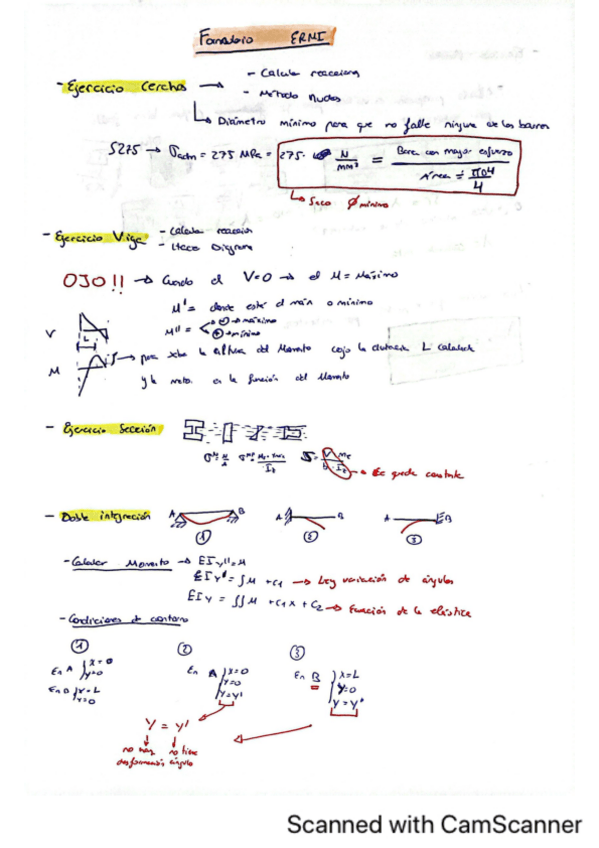 Formulario ERMI
- Ejercicio Cerchas → - Calcular reacciones
- Método Nudos
↳ Diámetro mínimo para que no falle ninguna de las barras
S275 → σadm = 275 MPa = 275 · N/mm² = Barra con mayor esfuerzo / Área = πD4/4
↳ Saco Ø mínimo
- Ejercicio Viga - Calcular reacciones
- Hacer Diagrama
OJO!! → Cuando el V=0 → el M = Máximo
M' = donde está el máx o mínimo
M'' = < ⊖ → máximo
⊕ → mínimo
V
L
M
→ para saber la altura del Momento cojo la distancia L calculada
y la meto en la función del Momento
- Ejercicio Sección
→ Se queda constante
- Doble integración A B A B A B
① ② ③
- Calcular Momento → EIy'' = M
EIy' = ∫M + C1 → Ley variación de ángulos
EIy = ∫∫M + C1x + C2 → Función de la elástica
- Condiciones de contorno
① ② ③
En A } x = 0
y = 0
En B } x = L
y = 0
En A } x = 0
y = 0
y = y'
En B } x = L
y = 0
y = y'
y = y'
no hay deformación
no tiene ángulo
Scanned with CamScanner